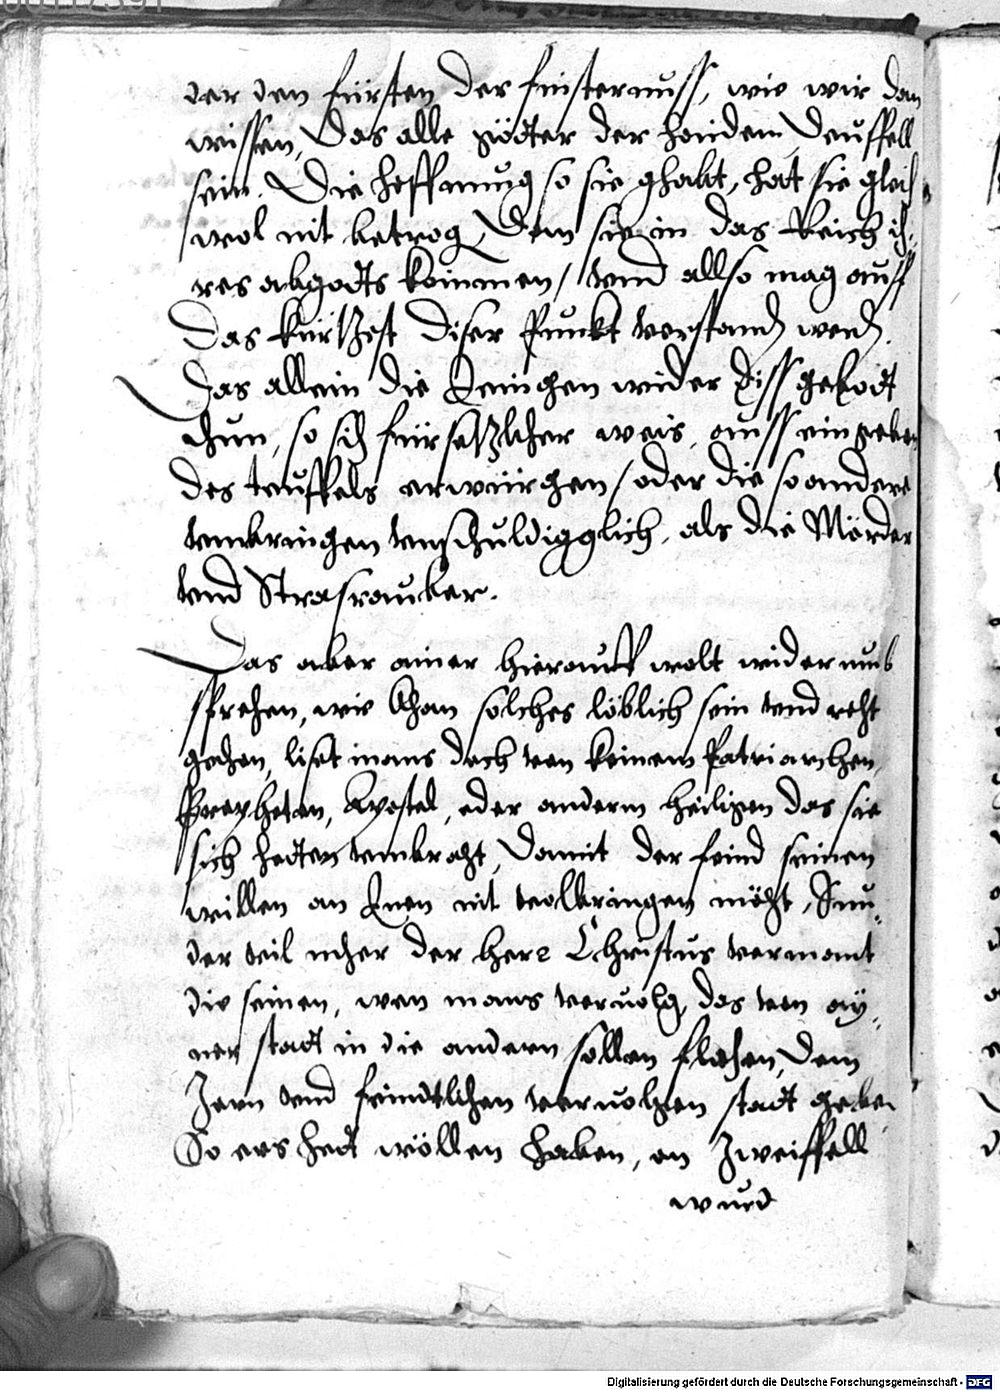 der den fürsten der finsternuss, wie wir dan
wissen, Das alle götter der haiden Deuffell
sein. Die hoffnung so sie ghabt, hat sie gleich
wol nit betrog, Dem sie in das Reich ih¬
res abgodts kommen / vnd allso mag auff
Das kürtzest diser Punckt verstand werd.
Das allein die Jenigen wider diss gebodt
thun, so sich fürsetzlicher weis, auss eingeben
des teuffels erwürgen / oder die so andere
vmbringen vnschuldigglich, als die Mörder
vnd Strasrauber.
Das aber ainer hierauff wolt widerumb
sprehen, wie khan solches löblich sein vnd reht
gethan, liset mans doch von keinem Patriarchen,
Propheten, Apostel, oder anderm heiligen das sie
sich hetten vmbraht, Damit der feind seinen
willen an Jnen nit volbringen möht,
der weil vher der herr Christus vermant
die seinen, wen mans veruolg, das von ay¬
ner stadt in die andern sollen fliehen, Dem
Zorn vnd feindtlichen veruolgen stadt geben
So ers hett wöllen haben, on Zweiffell
wurd
Digitalisierung gefördert durch die Deutsche Forschungsgemeinschaft - DFG